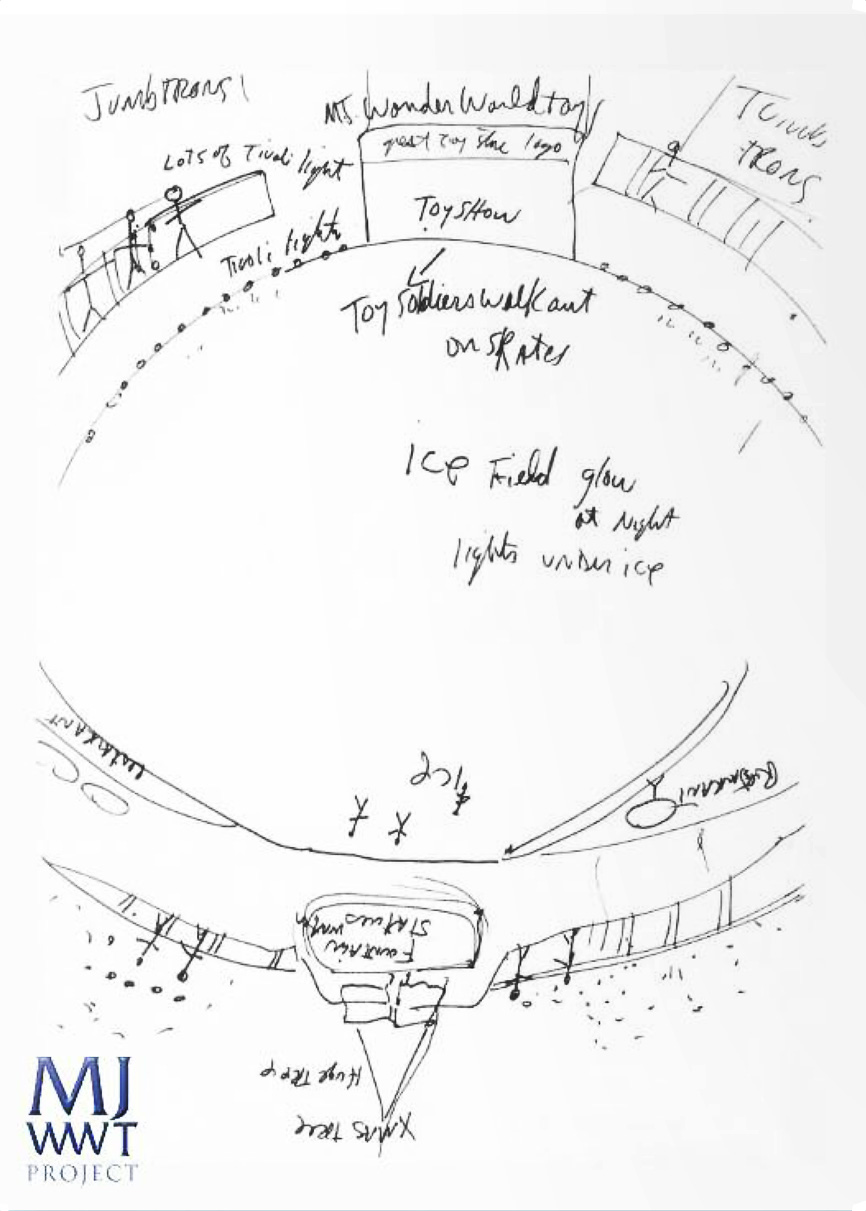 JumbTRONS!
MJ. Wonder World toys
great toy store logo
LOTS OF Tivoli light
Tivoli lights
TOYSHOW
TRONS
Toy Soldiers walk out
on SKates
Ice Field glow
at Night
lights under ice
Restaurant
ICE
Restaurant
Fountain
Statues water
Huge Tree
XMAS tree
MJ
WWT
PROJECT